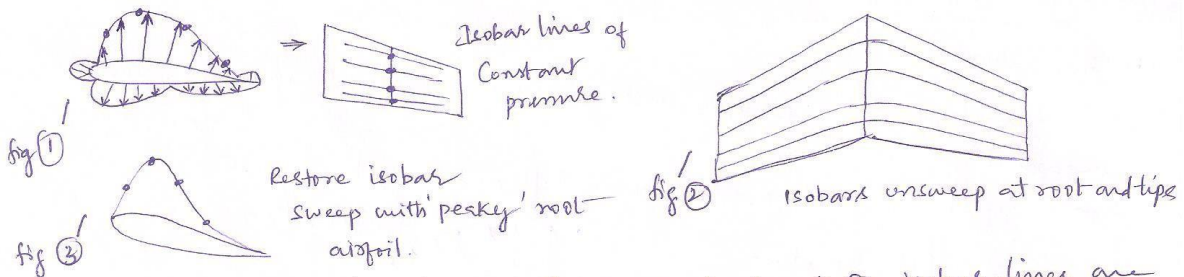 Isobar lines of
Constant
pressure.
fig 1
Restore isobar
sweep with 'peaky' root
airfoil.
fig 3
fig 2
isobars unsweep at root and tips
isobar lines are